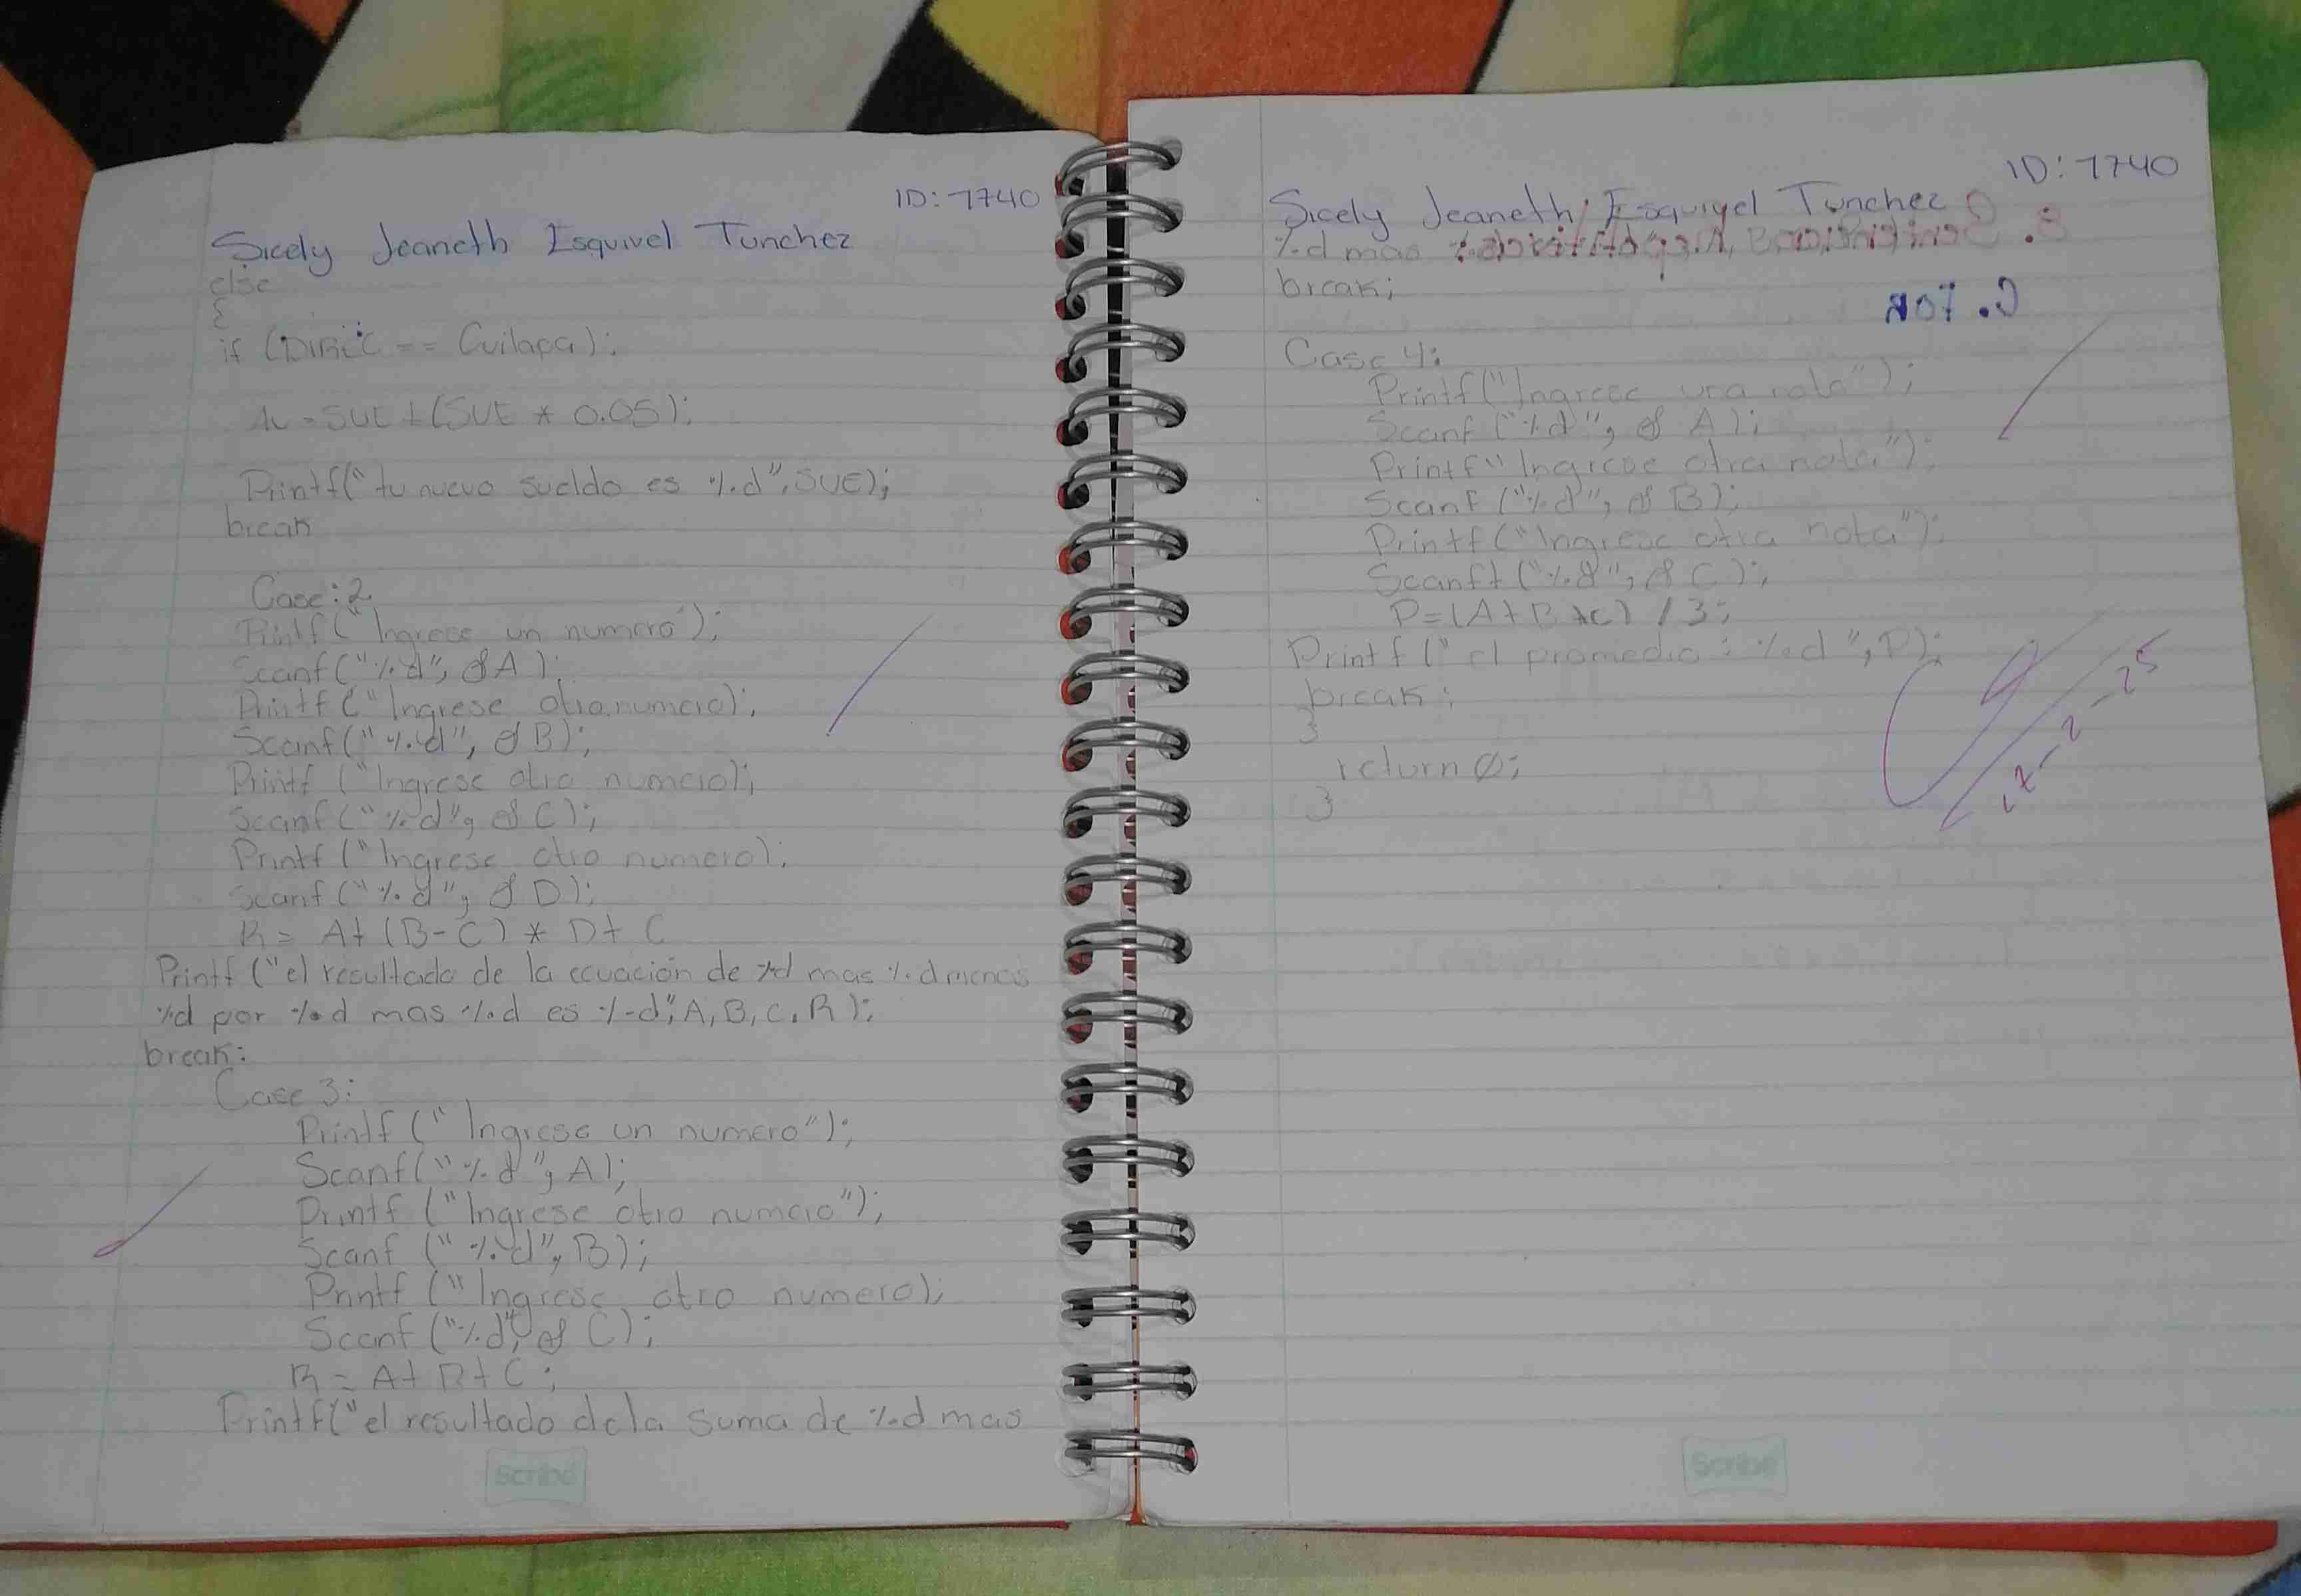 ID: 7740
Sicely Jeaneth Esquivel Tunchez
else
{
if (DIREC == Cuilapa);
AU = SUE + (SUE * 0.05);
Printf("tu nuevo sueldo es %d", SUE);
break
Case: 2
Printf("Ingrese un numero");
Scanf("%d", & A);
Printf ("Ingrese otro numero);
Scanf("%d", & B);
Printf ("Ingrese otro numero);
Scanf("%d", & C);
Printf ("Ingrese otro numero);
Scanf("%d", & D);
R = A+ (B-C) * D+ C
Printf ("el resultado de la ecuación de %d mas %d menos
%d por %d mas %d es %d", A, B, C, R);
break;
Case 3:
Printf (" Ingrese un numero");
Scanf("%d", A);
Printf ("Ingrese otro numero");
Scanf ("%d", B);
Printf ("Ingrese otro numero);
Scanf ("%d", & C);
R = A+ B+ C ;
Printf("el resultado dela suma de %d mas
Scribe
ID: 7740
Sicely Jeaneth Esquivel Tunchez
%d mas
break;
Case 4:
Printf("Ingrese una nota");
Scanf ("%d", & A);
Printf" Ingrese otra nota");
Scanf ("%d", & B);
Printf ("Ingrese otra nota");
Scanft ("%d", & C);
P=(A+B+C) / 3;
Printf (" el promedio : %d ", P);
break;
}
return 0;
}
17-2-25
Scribe